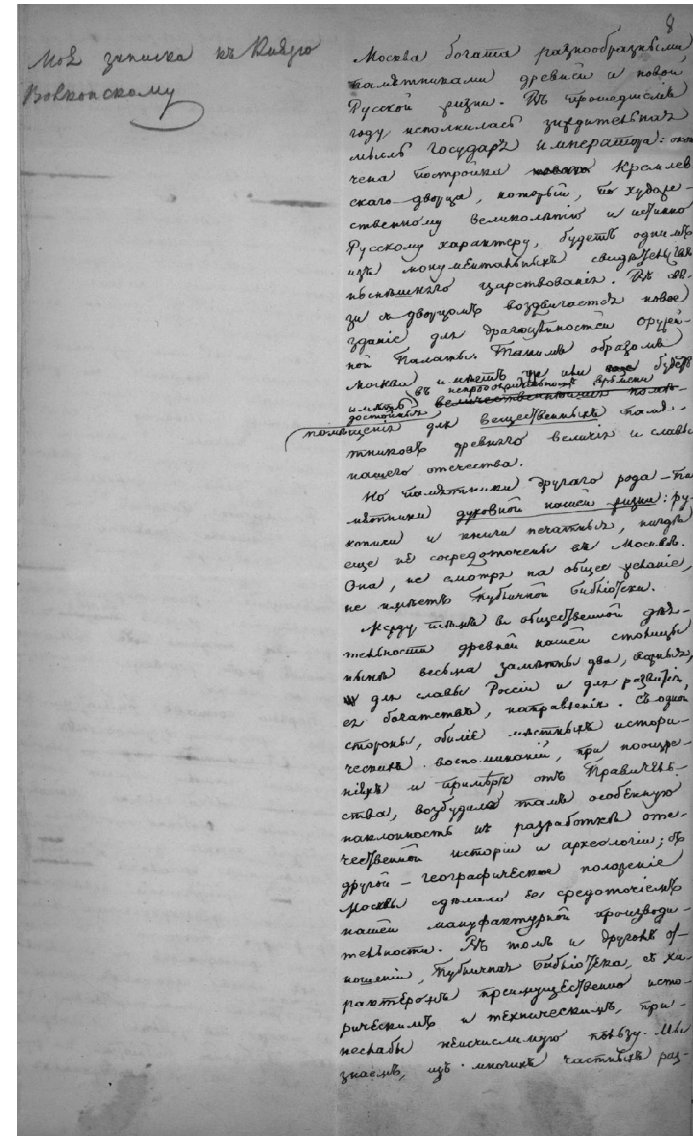 8
Моя записка къ Князю
Волконскому
Москва богата разнообразными
памятниками древней и новой
Русской жизни. Въ прошедшемъ
году исполнилась зиждительная
мысль Государя Императора: окон
чена постройка Кремлев
скаго дворца, который, по художе-
ственному великолѣпію и истинно
Русскому характеру, будетъ однимъ
изъ монументальныхъ свидѣтелей
нынѣшняго царствованія. Въ свя-
зи съ дворцомъ воздвигается новое
зданіе для драгоцѣнностей Оружей-
ной Палаты. Такимъ образомъ
Москва будетъ
въ непродолжительномъ времени
имѣть величественнѣйшія
достойныя
помѣщенія для вещественныхъ памя-
тниковъ древняго величія и славы
нашего отечества.
Но памятники другаго рода – па
мятники духовной нашей жизни: ру-
кописи и книги печатныя, нигдѣ
еще не сосредоточены въ Москвѣ.
Она, не смотря на общее желаніе,
не имѣетъ Публичной Библіотеки.
Между тѣмъ въ общественной дѣя-
тельности древней нашей столицы
нынѣ весьма замѣтны два, важныя,
для славы Россіи и для развитія
ея богатствъ, направленія. Съ одной
стороны, обиліе мѣстныхъ истори-
ческихъ воспоминаній, при поощре-
ніяхъ и примѣрѣ отъ Правитель-
ства, возбудило тамъ особенную
наклонность къ разработкѣ оте-
чественной исторіи и археологіи; съ
другой – географическое положеніе
Москвы сдѣлало ее средоточіемъ
нашей мануфактурной производи-
тельности. Въ томъ и другомъ от-
ношеніи, Публичная Библіотека, съ ха-
рактеромъ преимущественно исто-
рическимъ и техническимъ, при-
несла бы неисчислимую пользу. Мы
знаемъ, изъ многихъ частныхъ раз-